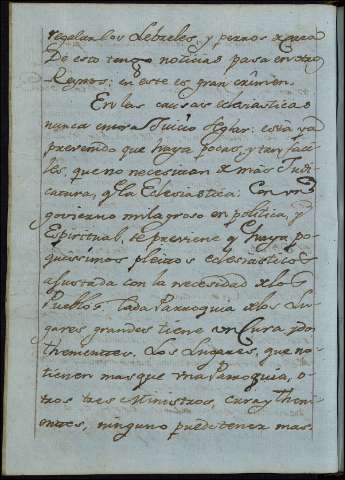 regalan los Lebreles, y perros de caza
De esto tengo noticias pasa en otro
Reyno: en este es gran crimen.
En las causas eclesiasticas
nunca entra Juicio seglar: està ya
prevenido que haya pocas, y tan faci-
les, que no necesitan de mas Judi-
catura, q̃ la Eclesiastica: Con un
govierno milagroso en politica, y
Espiritual, se previene q̃ haya po-
quissimos pleitos eclesiasticos
ajustada con la necesidad de los
Pueblos. Cada Parroquia de los Lu-
gares grandes tiene un Cura, y dos
thenientes. Los Lugares, que no
tienen mas que una Parroquia, o-
tros tres Ministros, cura y Theni-
entes, ninguno puede tener mas.